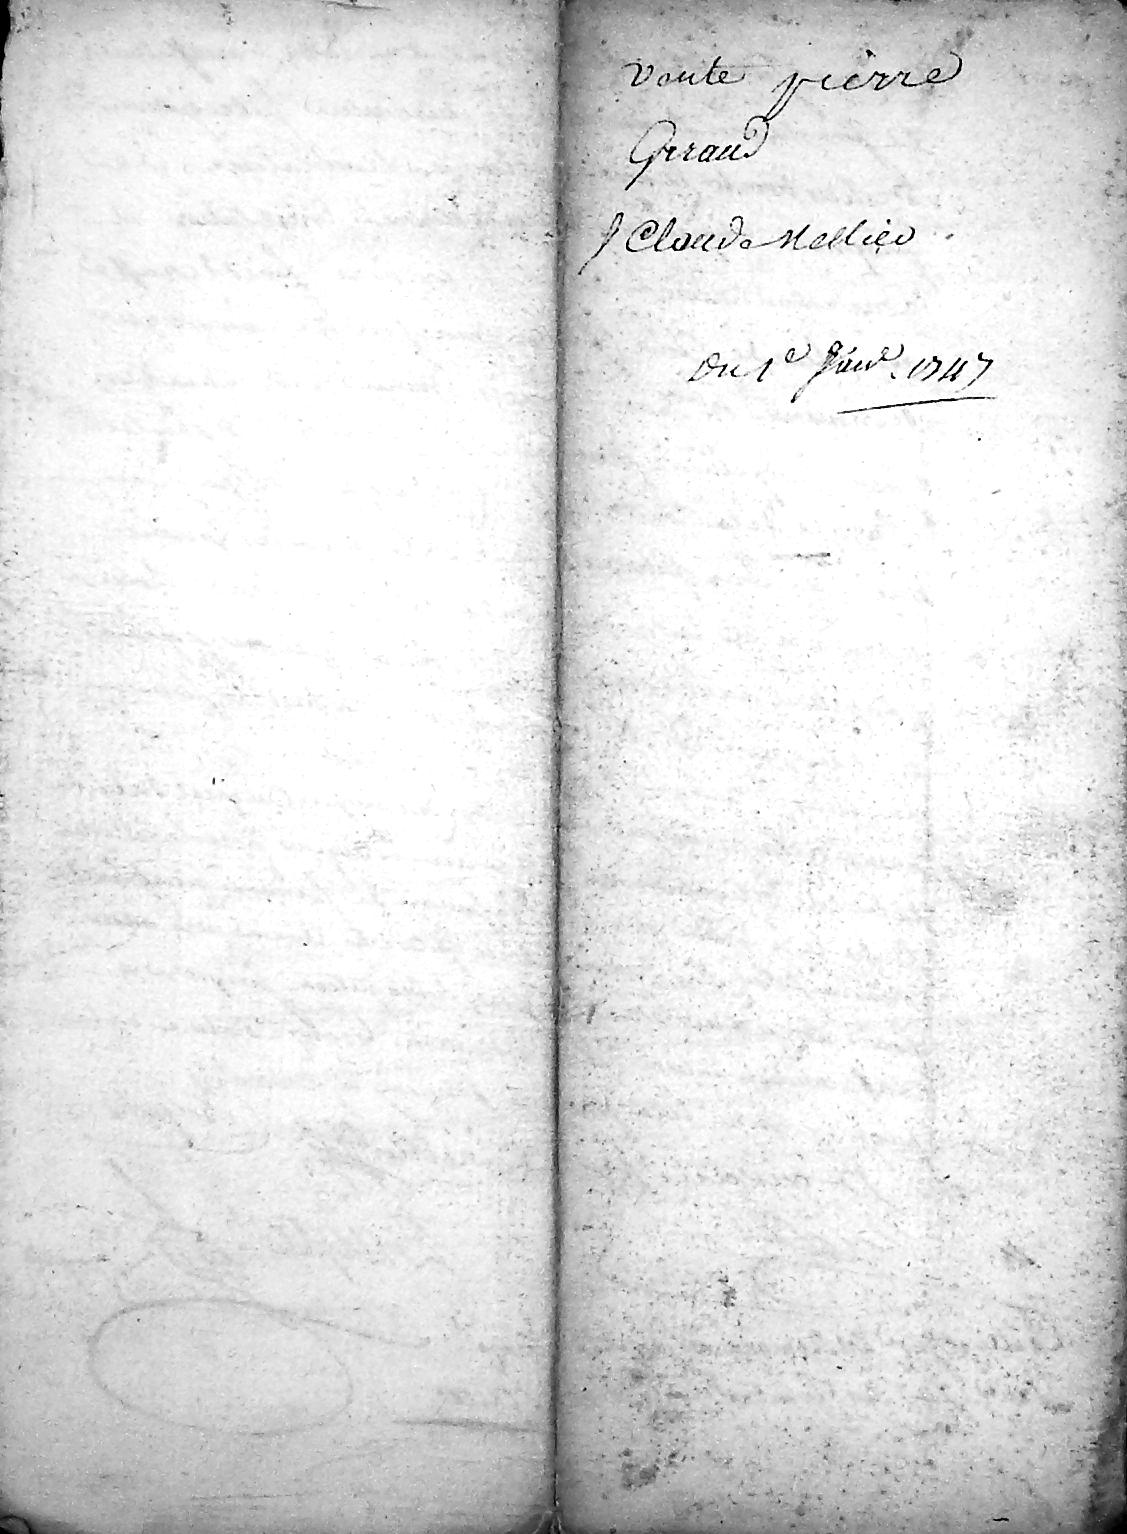 Vente pierre
Giraud
p Claude Mellier
Du 1e Janv. 1747